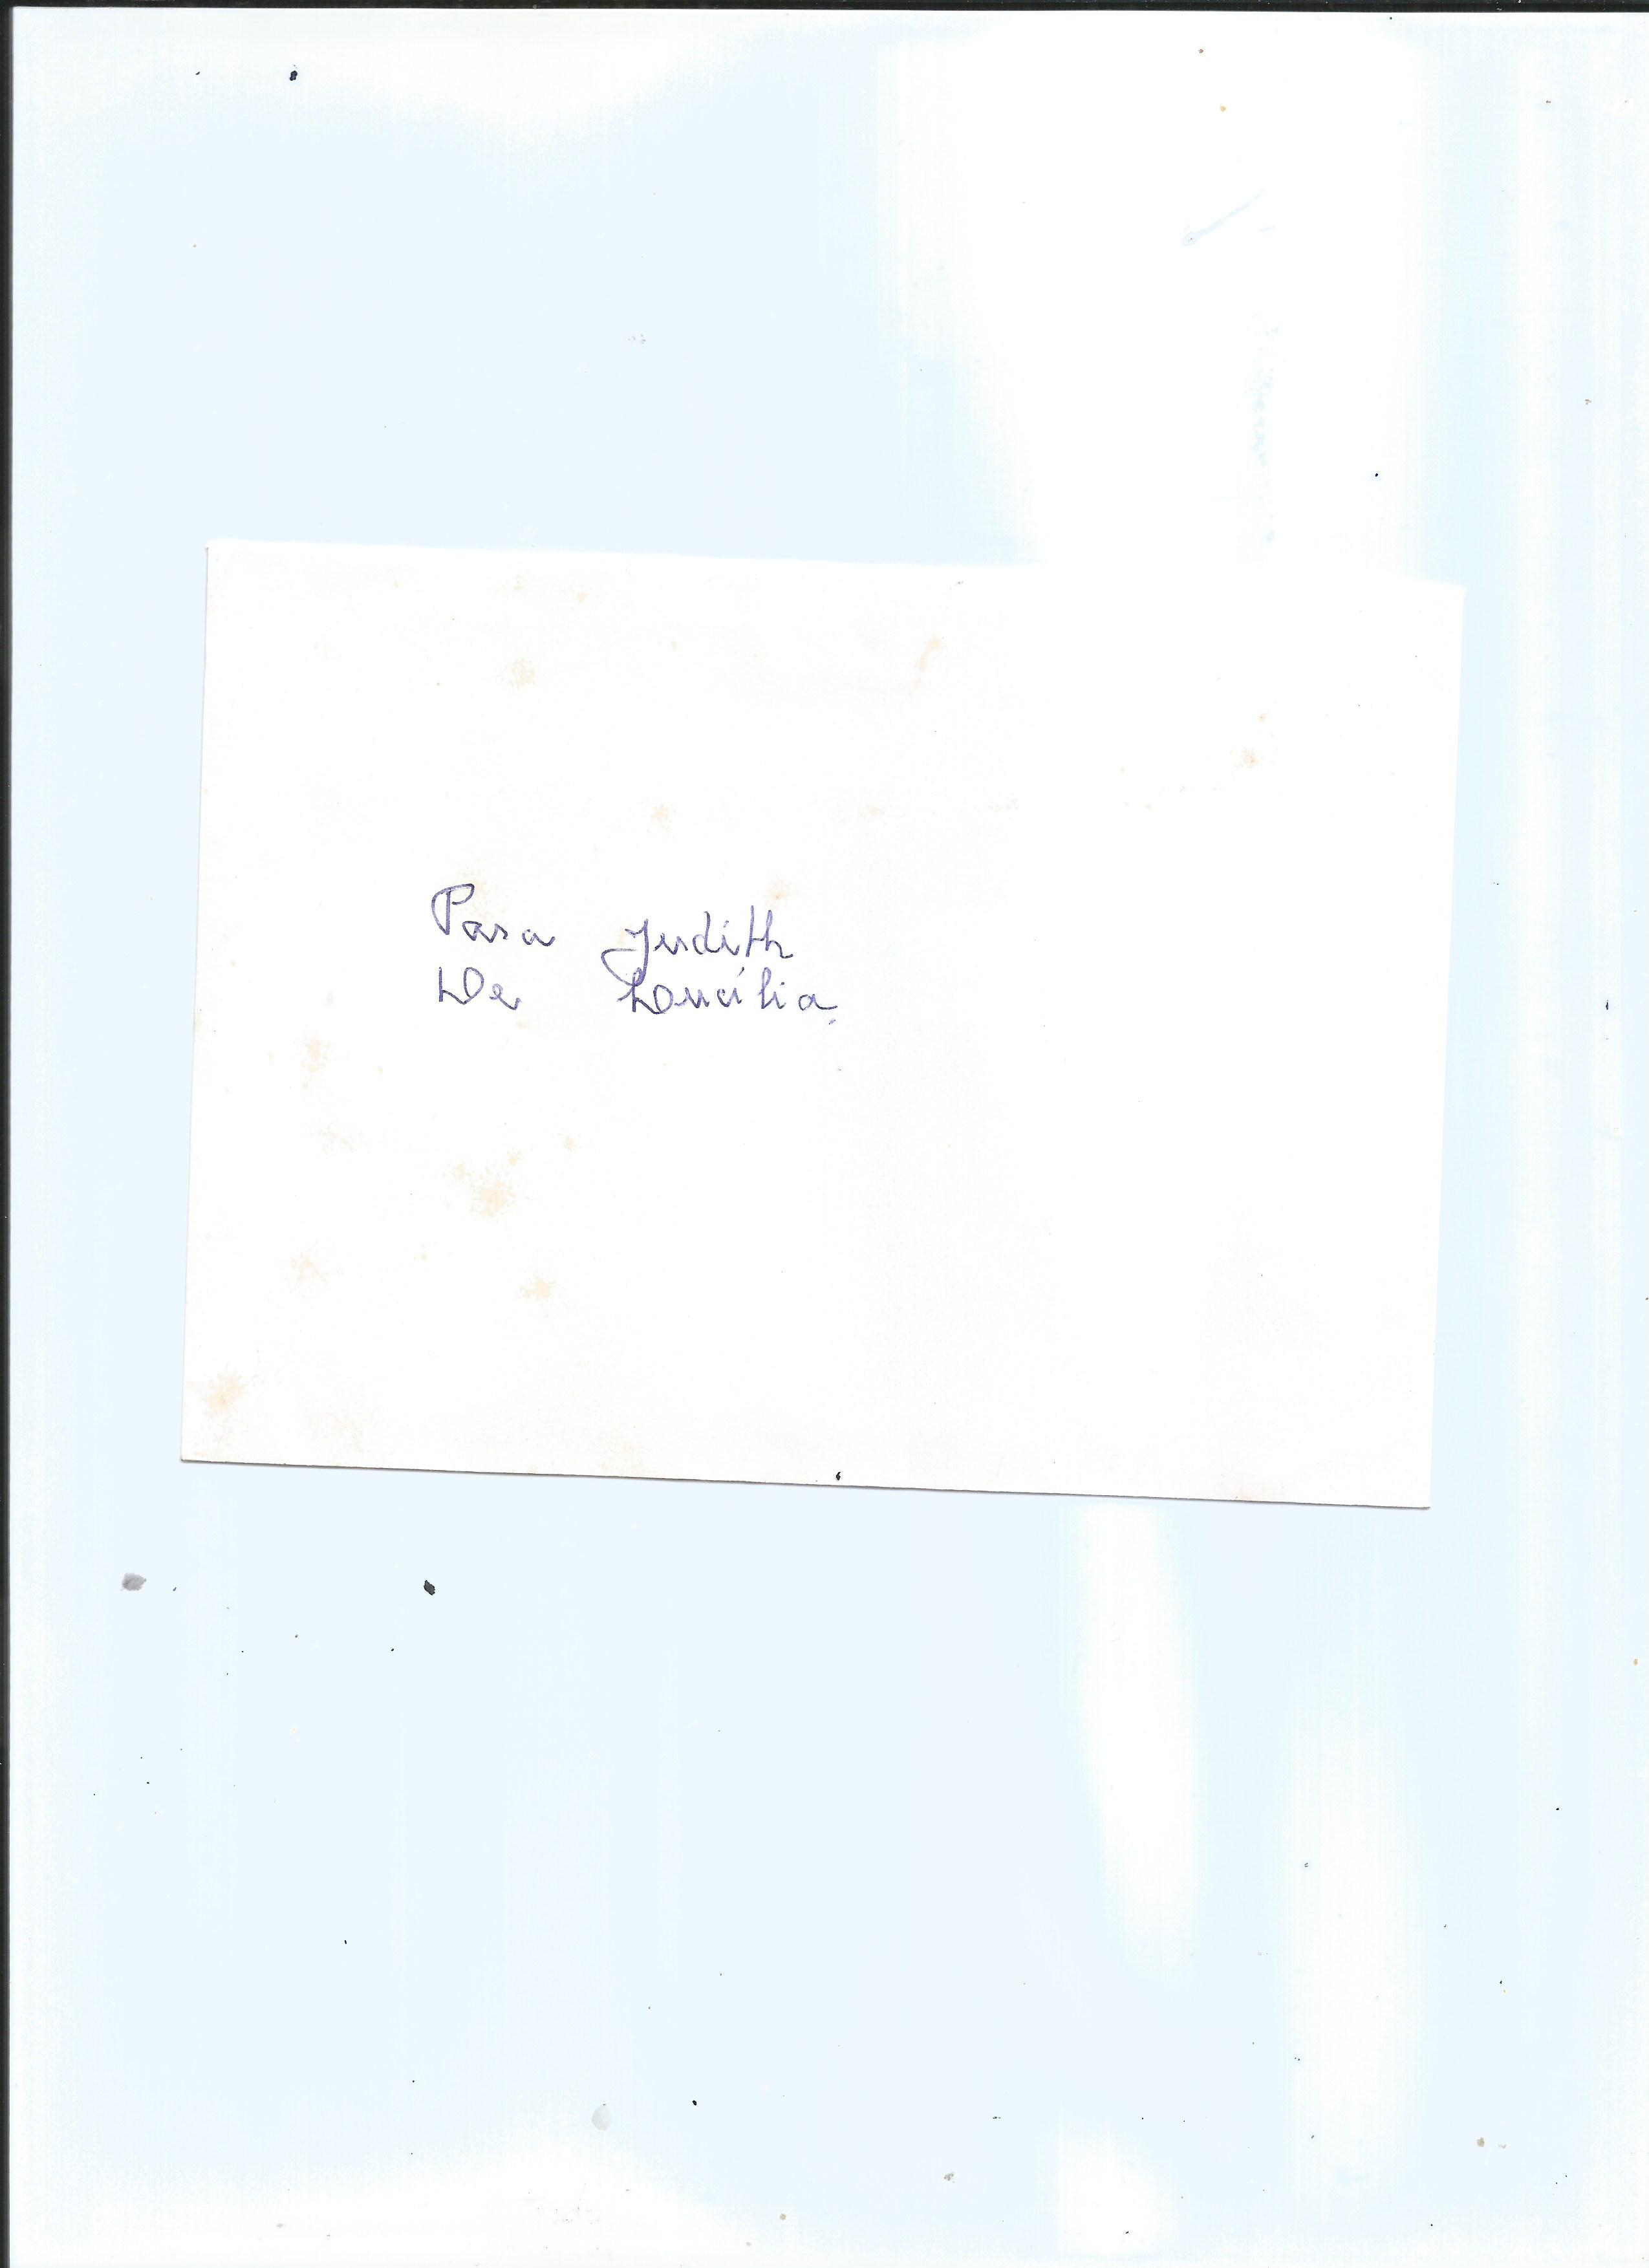 Para Judith
De Ducília.